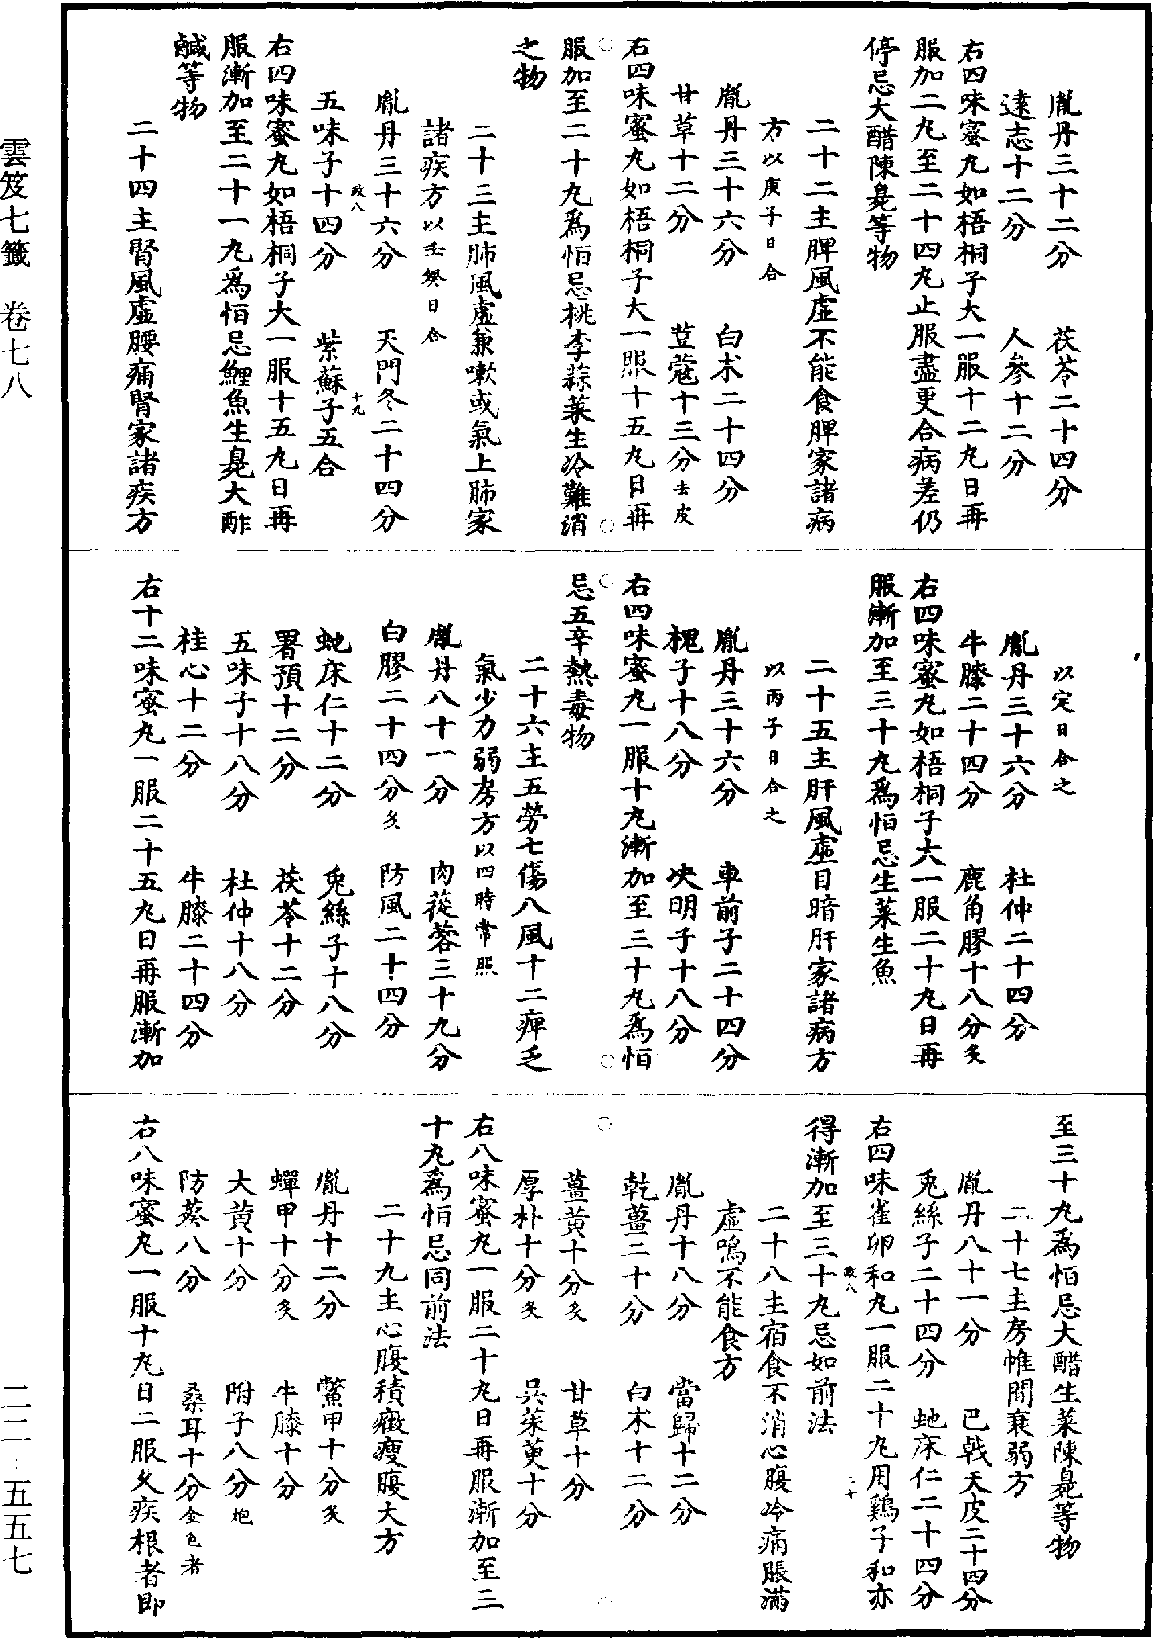 胤丹三十二分　茯苓二十四分
遠志十二分　人參十二分
右四味蜜丸如梧桐子大一服十二丸日再
服加二丸至二十四丸止服盡更合病差仍
停忌大醋陳臰等物
二十二主脾風虛不能食脾家諸病
方以庚子日合
胤丹三十六分　白朮二十四分
甘草十二分　荳蔻十三分去皮
右四味蜜丸如梧桐子大一服十五丸日再
服加至二十丸爲怕忌桃李蒜菜生冷難消
之物
二十三主肺風虛兼嗽或氣上肺家
諸疾方以壬癸日合
胤丹三十六分　天門冬二十四分
政八　十九
五味子十四分　紫蘇子五合
右四味蜜丸如梧桐子大一服十五丸日再
服漸加至二十一丸爲怕忌鯉魚生臰大酢
鹹等物
二十四主腎風虛腰痛腎家諸疾方
以定日合之
胤丹三十六分　杜仲二十四分
牛膝二十四分　鹿角膠十八分炙
右四味蜜丸如梧桐子大一服二十丸日再
服漸加至三十丸爲怕忌生菜生魚
二十五主肝風虛目暗肝家諸病方
以丙子日合之
胤丹三十六分　車前子二十四分
槐子十八分　决明子十八分
右四味蜜丸一服十丸漸加至三十丸爲怕
忌五辛熱毒物
二十六主五勞七傷八風十二痹乏
氣少力弱房方以四時常照
胤丹八十一分　肉蓯蓉三十九分
白膠二十四分炙　防風二十四分
虵床仁十二分　兎絲子十八分
署預十二分　茯苓十二分
五味子十八分　杜仲十八分
桂心十二分　牛膝二十四分
右十二味蜜丸一服二十五丸日再服漸加
至三十丸爲怕忌大醋生菜陳臰等物
二十七主房帷間衰弱方
胤丹八十一分　巴戟天皮二十四分
兎絲子二十四分　虵床仁二十四分
右四味雀卵和丸一服二十丸用鷄子和亦
政八　二十
得漸加至三十丸忌如前法
二十八主宿食不消心腹冷痛脹滿
虛鳴不能食方
胤丹十八分　當歸十二分
乾薑二十分　白朮十二分
薑黄十分炙　甘草十分
厚朴十分炙　吳茱萸十分
右八味蜜丸一服二十丸日再服漸加至三
十丸爲怕忌同前法
二十九主心腹積癥瘦腹大方
胤丹十二分　鱉甲十分炙
蟬甲十分炙　牛膝十分
大黄十分　附子八分炮
防葵八分　桑耳十分金色者
右八味蜜丸一服十丸日二服久疾根者即
雲笈七籤　卷七八
二二·五五七